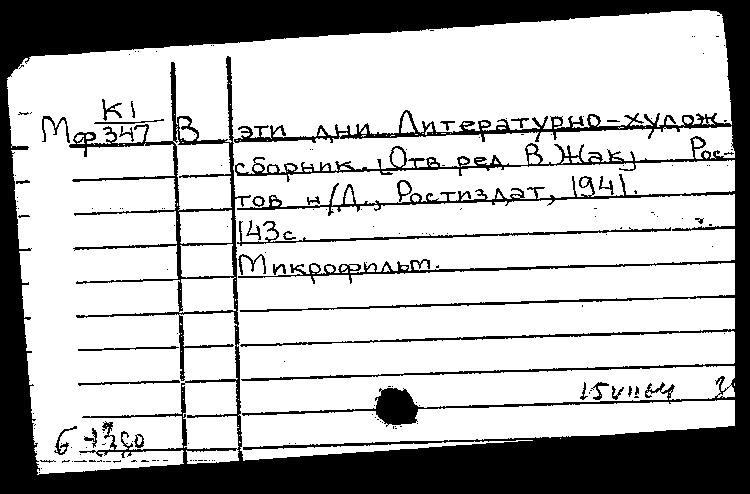 К1
Мф 347 В эти дни. Литературно-худож.
сборник. [Отв. ред. В. Жак]. Рос-
тов н/Д., Ростиздат, 1941.
143с.
Микрофильм.
15 VII 64